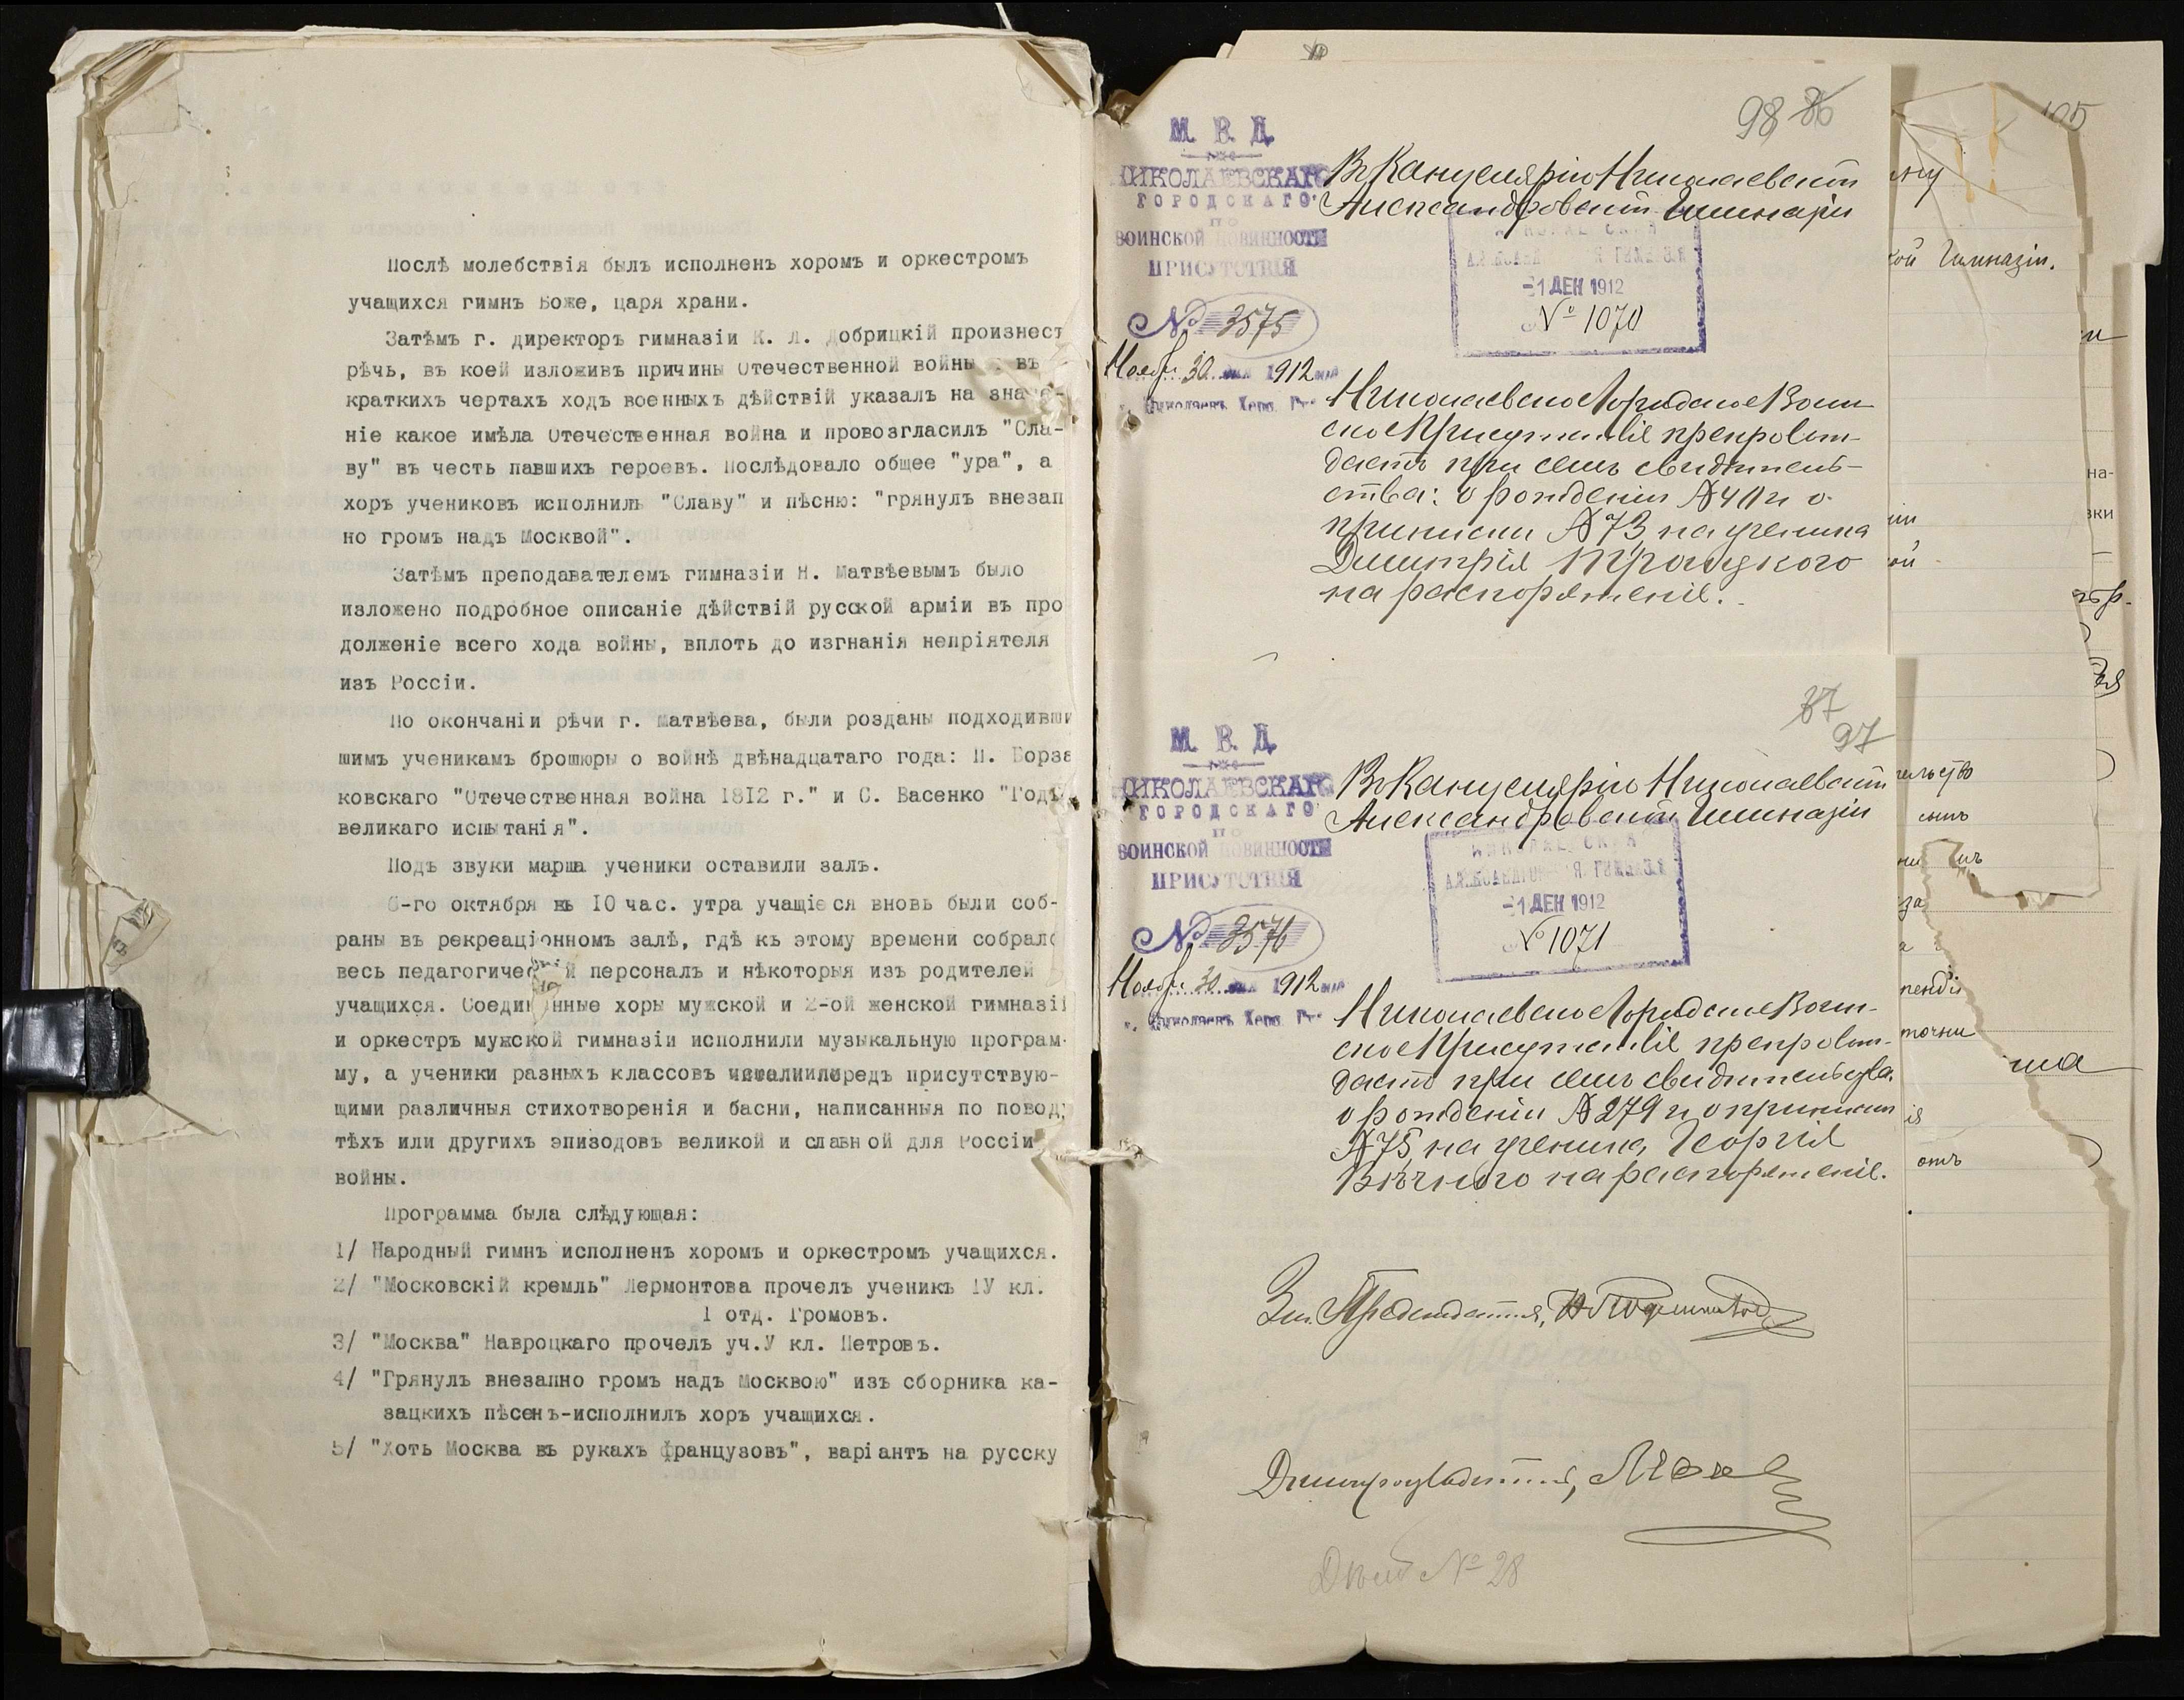 Послѣ молебствія былъ исполненъ хоромъ и оркестромъ
учащихся гимнъ Боже, царя храни.
Затѣмъ г. директоръ гимназіи К. Л. Добрицкій произнест
рѣчь, въ коей изложивъ причины Отечественной войны въ
краткихъ чертахъ ходъ военныхъ дѣйствій указалъ на значе-
ніе какое имѣла Отечественная война и провозгласилъ "Сла-
ву" въ честь павшихъ героевъ. Послѣдовало общее "ура", а
хоръ учениковъ исполнилъ "Славу" и пѣсню: "грянулъ внезап
но громъ надъ Москвой".
Затѣмъ преподавателемъ гимназіи Н. Матвѣевымъ было
изложено подробное описаніе дѣйствій русской арміи въ про
долженіе всего хода войны, вплоть до изгнанія непріятеля
изъ Россіи.
По окончаніи рѣчи г. Матвѣева, были розданы подходивши
шимъ ученикамъ брошюры о войнѣ двѣнадцатаго года: П. Борза
ковскаго "Отечественная война 1812 г." и С. Васенко "Годъ
великаго испытанія".
Подъ звуки марша ученики оставили залъ.
6-го октября въ 10 час. утра учащіеся вновь были соб-
раны въ рекреаціонномъ залѣ, гдѣ къ этому времени собрало
весь педагогическій персоналъ и нѣкоторыя изъ родителей
учащихся. Соединенные хоры мужской и 2-ой женской гимназіи
и оркестръ мужской гимназіи исполнили музыкальную програм-
му, а ученики разныхъ классовъ передъ присутствую-
щими различныя стихотворенія и басни, написанныя по поводу
тѣхъ или другихъ эпизодовъ великой и славной для Россіи
войны.
Программа была слѣдующая:
1/ Народный гимнъ исполненъ хоромъ и оркестромъ учащихся.
2/ "Московскій кремль" Лермонтова прочелъ ученикъ IУ кл.
1 отд. Громовъ.
3/ "Москва" Навроцкаго прочелъ уч.У кл. Петровъ.
4/ "Грянулъ внезапно громъ надъ Москвою" изъ сборника ка-
зацкихъ пѣсенъ-исполнилъ хоръ учащихся.
5/ "Хоть Москва въ рукахъ французовъ", варіантъ на русску
98 86
М. В. Д.
НИКОЛАЕВСКАГО
ГОРОДСКАГО
по
ВОИНСКОЙ ПОВИННОСТИ
ПРИСУТСТВІЯ
№ 3575
Ноябр. 30 дня 1912
г. Николаевъ Херс. Гу.
Въ Канцелярію Николаевской
Александровской Гимназіи
АЛЕКСАНД Я ГИМНАЗІЯ
-1 ДЕК 1912
№ 1070
Николаевское Городское Воин
ское Присутствіе препровож-
даетъ при семъ свидѣтель-
ства: о рожденіи № 411 и о
припискѣ № 73 на ученика
Димитрія Троицкого
на распоряженіе.
87
97
М. В. Д.
НИКОЛАЕВСКАГО
ГОРОДСКАГО
по
ВОИНСКОЙ ПОВИННОСТИ
ПРИСУТСТВІЯ
№ 3576
Ноябр. 30 дня 1912
г. Николаевъ Херс. Гу.
Въ Канцелярію Николаевской
Александровской Гимназіи
АЛЕКСАНДРОВ Я ГИМНАЗІЯ
-1 ДЕК 1912
№ 1071
Николаевское Городское Воин-
ское Присутствіе препровож-
даетъ при семъ свидѣтельства
о рожденіи № 279 и о припискѣ
№ 75, на ученика Георгія
Вѣчного на распоряженіе.
Предсѣдателя,
Дѣлопроизводитель,
Дѣло № 28
105
ной Гимназіи.
на-
вки
тельство
за
точни
ша
отъ